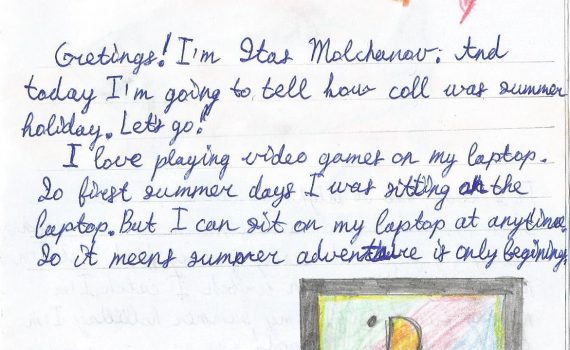 Gretings! I'm Itas Molchanov. And
today I'm going to tell how coll was summer
holiday. Let's go!
I love playing video games on my laptop.
So first summer days I was sitting at the
laptop. But I can sit on my laptop at anytime.
So it meens summer adventure is only begining.